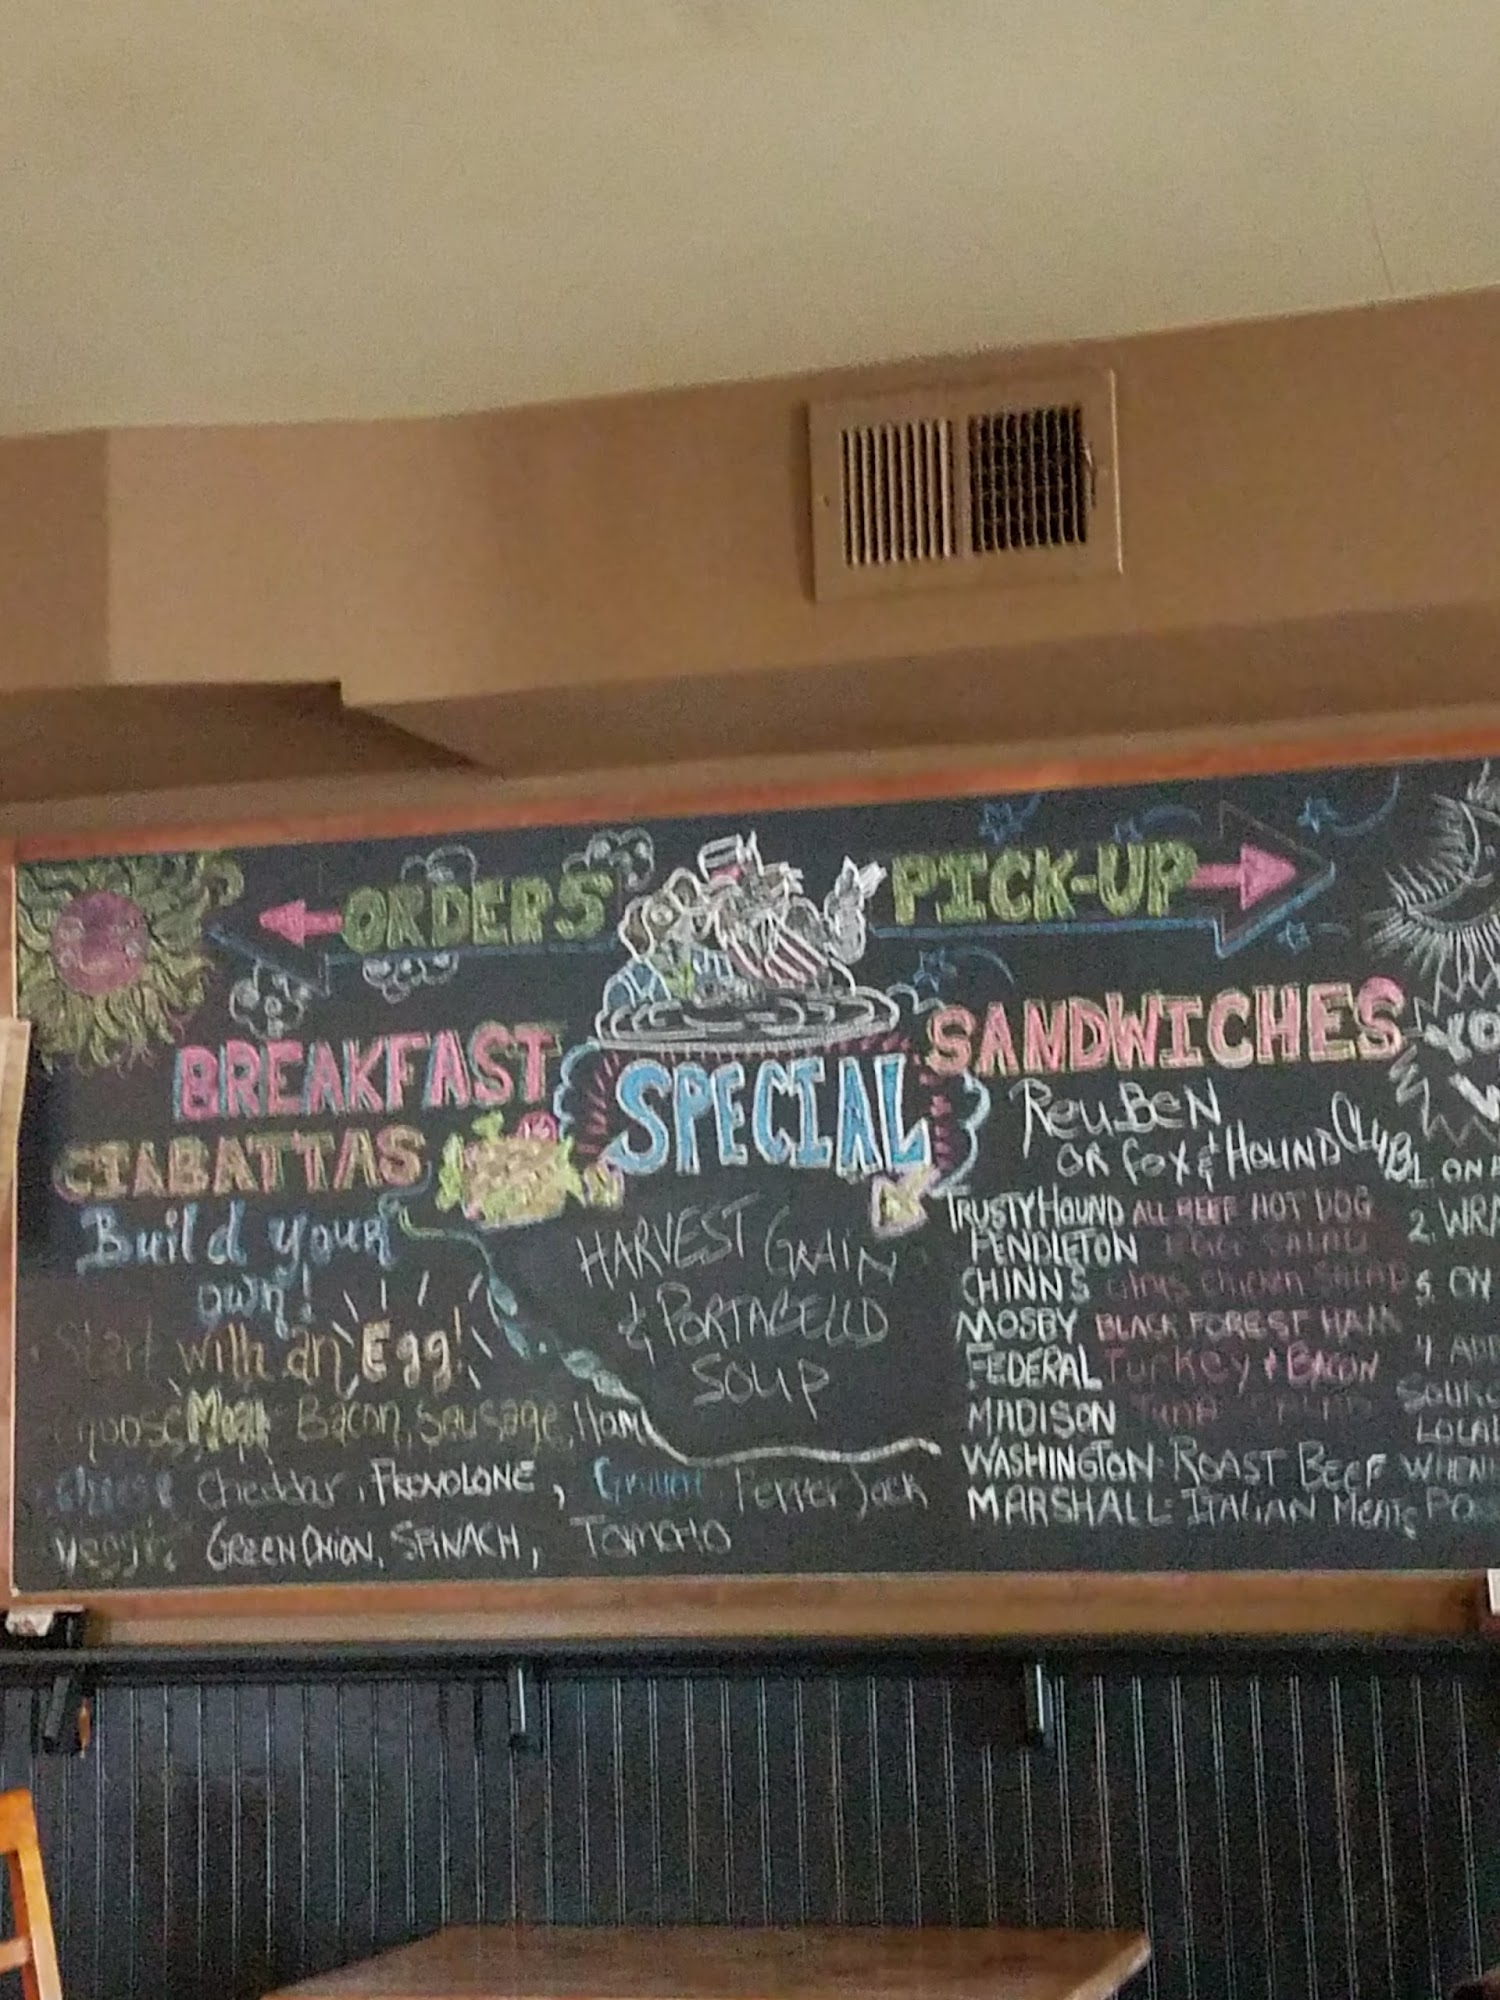 ORDERS
PICK-UP
BREAKFAST
CIABATTAS
Build your
own!
Start with an Egg!
Choose Meat Bacon, Sausage, Ham
Cheese Cheddar, PROVOLONE, Pepper Jack
Veggie GREEN ONION, SPINACH, Tomato
SPECIAL
HARVEST GRAIN
& PORTABELLO
SOUP
SANDWICHES
REUBEN
OR Fox & HOUND CLUB
TRUSTY HOUND ALL BEEF HOT DOG
PENDLETON EGG SALAD
CHINNS Chicken SALAD
MOSBY BLACK FOREST HAM
FEDERAL Turkey + BACON
MADISON TUNA SALAD
WASHINGTON ROAST BEEF
MARSHALL: ITALIAN MEATS
YO
W
1. ON
2. WRA
ON
4 ADD
SOURC
LOCAL
WHEN
PO